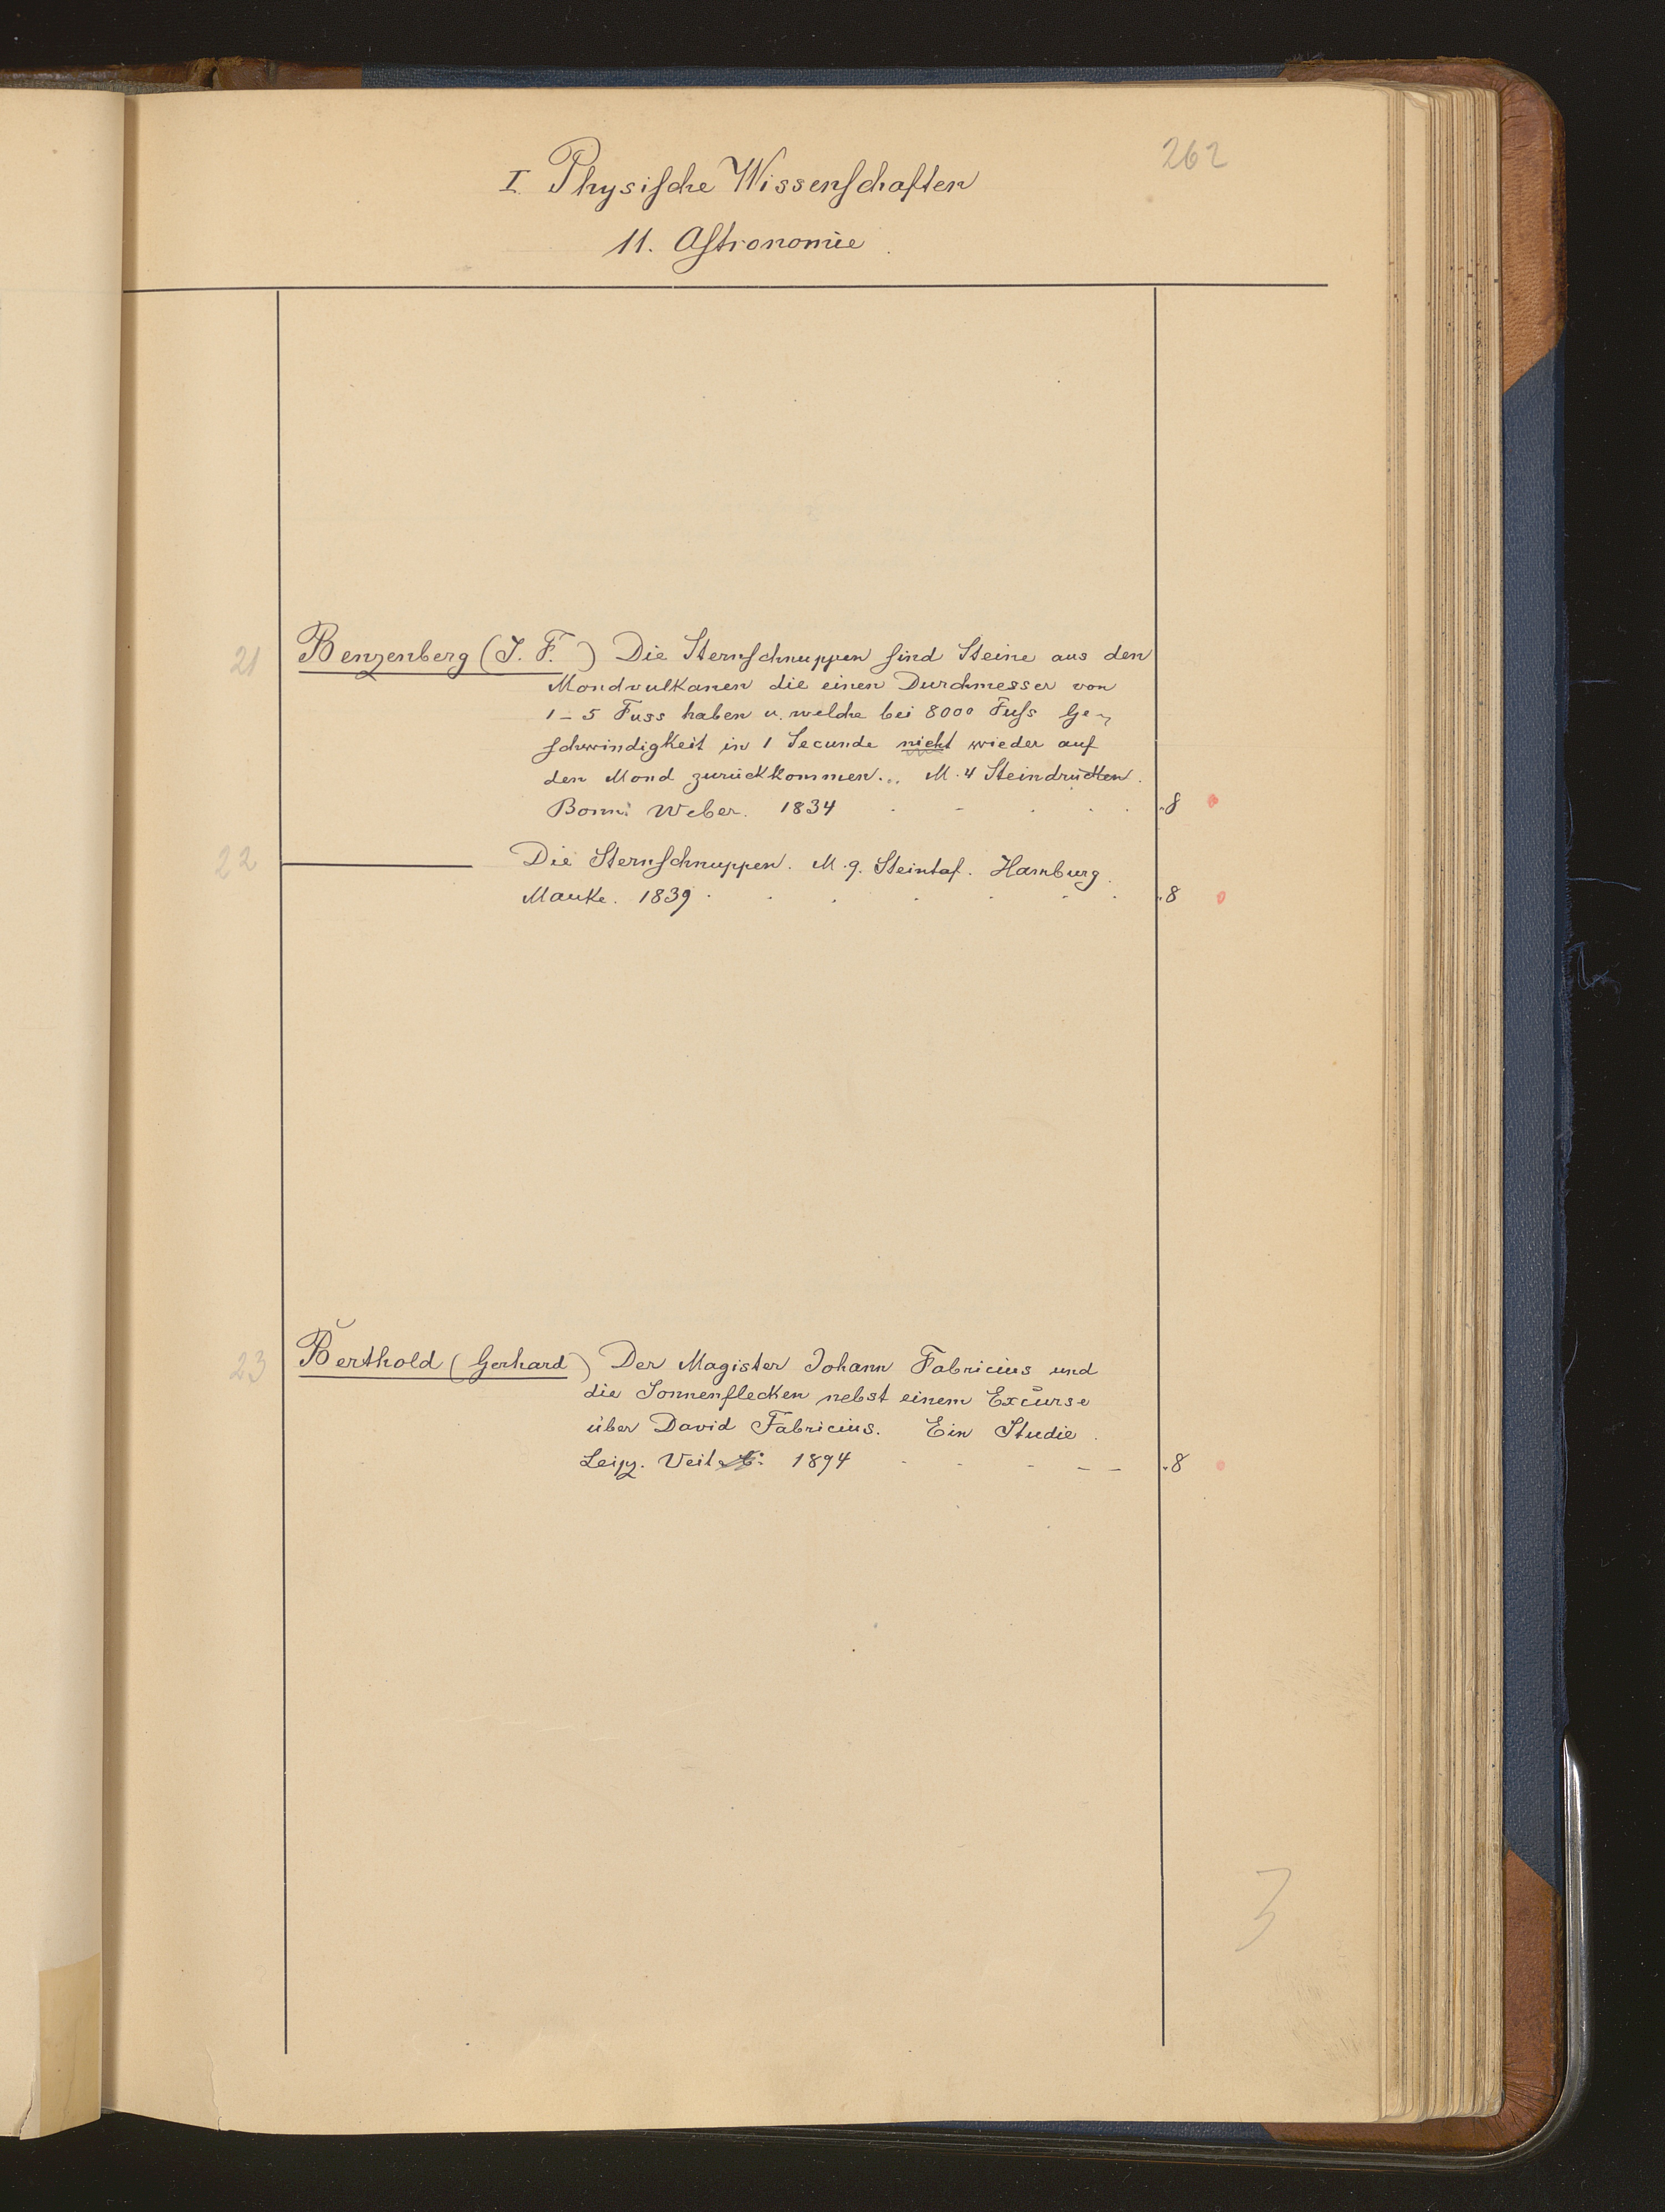 262
I. Physische Wissenschaften
11. Astronomie.
21 Benzenberg (J. F.) Die Sternschnuppen sind Steine aus den
Mondvulkanen die einen Durchmesser von
1-5 Fuss haben u. welche bei 8000 Fuss Ge-
schwindigkeit in 1 Secunde nicht wieder auf
den Mond zurückkommen... M. 4 Steindrücken.
Bonn: Weber. 1834 . - . . . 8
22 ——— Die Sternschnuppen. M. 9. Steintaf. Hamburg.
Mauke. 1839 . . . . . . . 8
23 Berthold (Gerhard) Der Magister Johann Fabricius und
die Sonnenflecken nebst einem Excurse
über David Fabricius. Ein Studie.
Leipz. Veit 1894 - - - - - 8
3